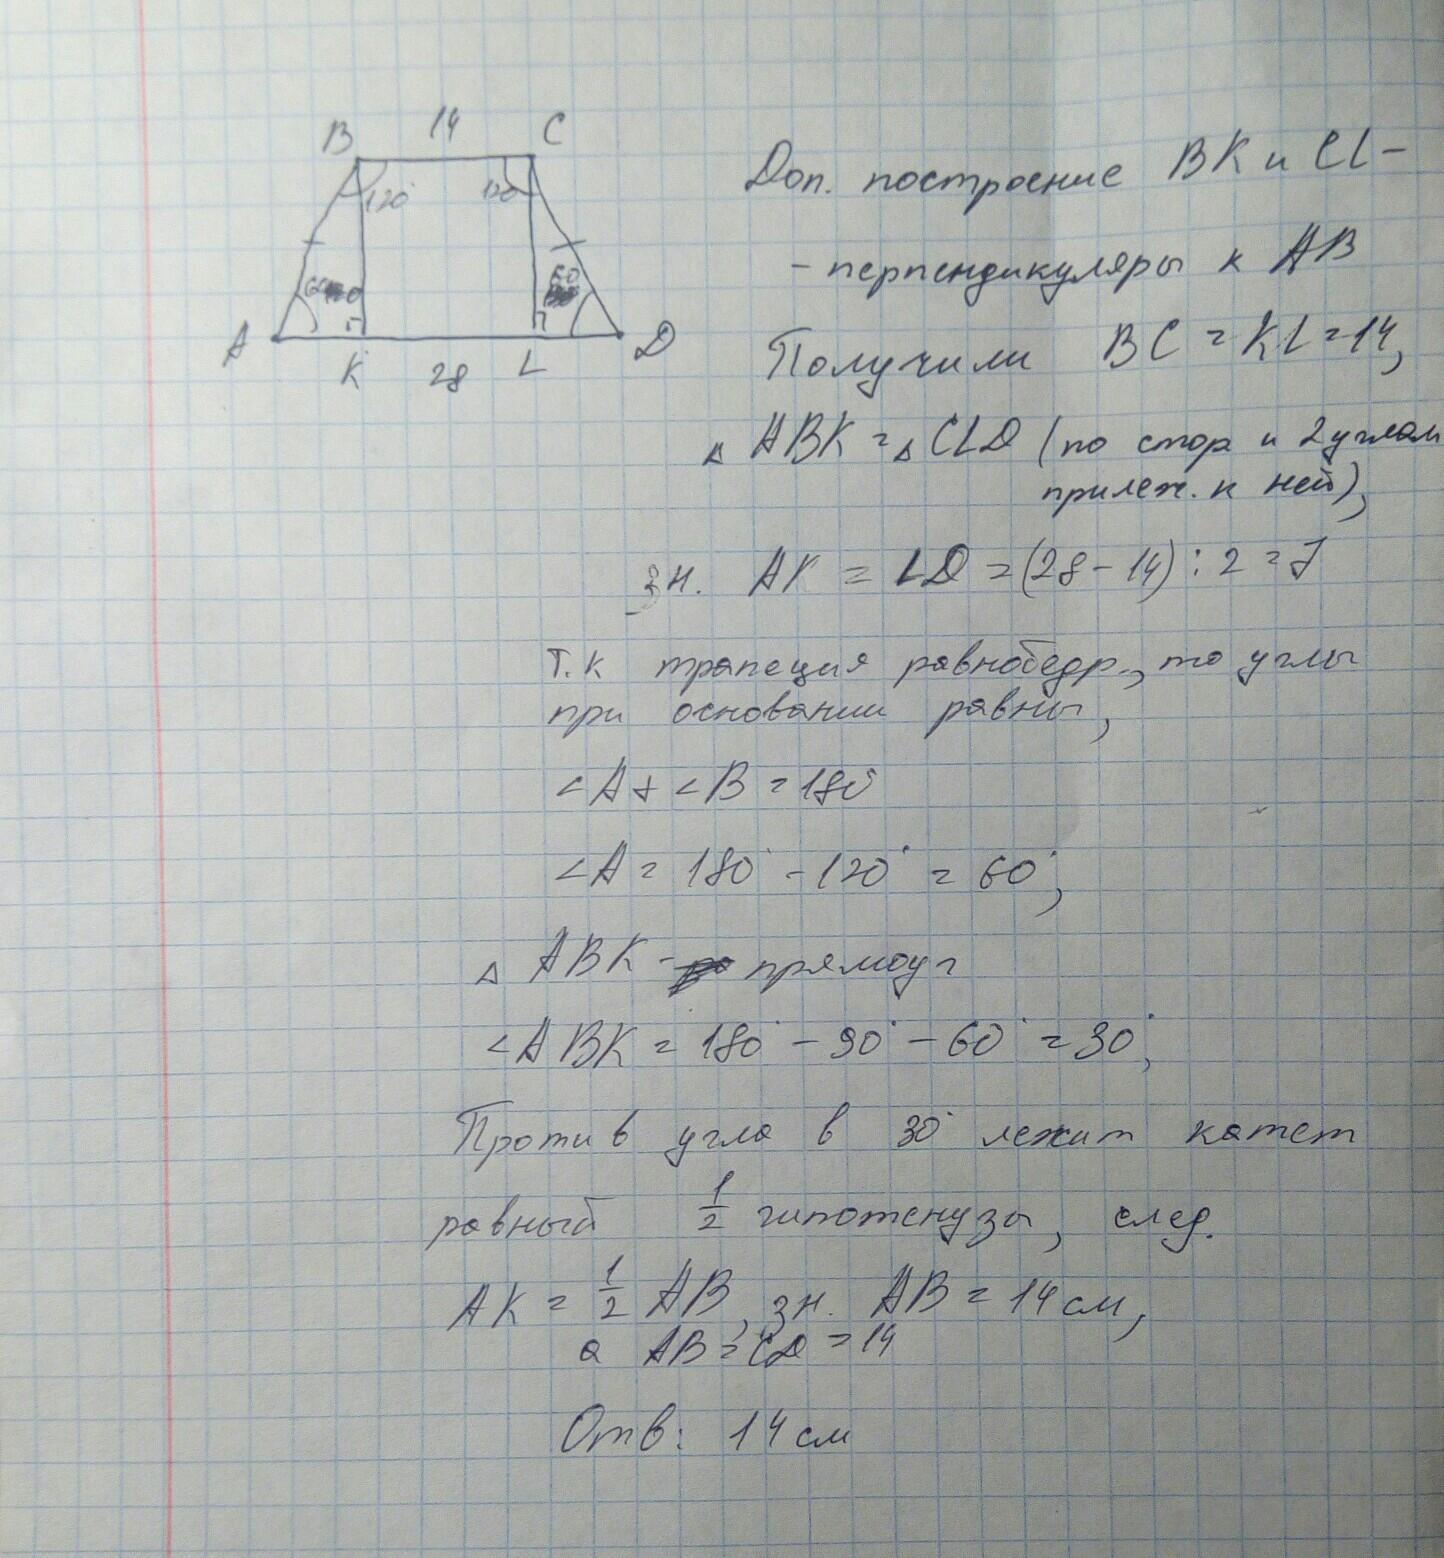 B 14 C
120° 120
60 60
A K 28 L D
Доп. построение BK и CL –
– перпендикуляры к AB
Получили BC = KL = 14,
△ ABK = △ CLD (по стор и 2 углам
прилеж. к ней),
зн. AK = LD = (28 – 14) : 2 = 7
Т.к трапеция равнобедр., то углы
при основании равны,
∠A + ∠B = 180°
∠A = 180° – 120° = 60°,
△ ABK – прямоуг
∠ABK = 180° – 90° – 60° = 30°,
Против угла в 30° лежит катет
равный 1/2 гипотенузы, след.
AK = 1/2 AB, зн. AB = 14 см,
а AB = CD = 14
Отв: 14 см